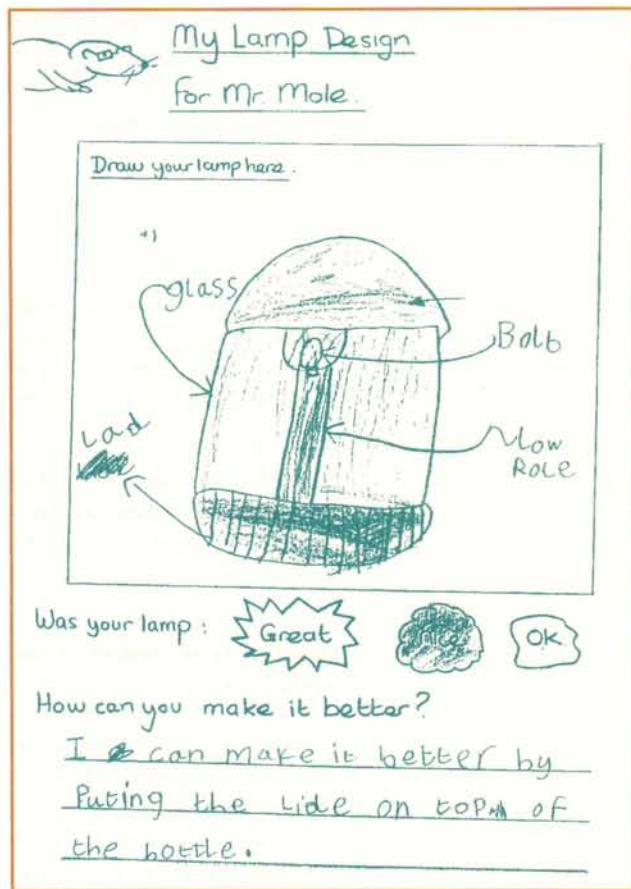 My Lamp Design
for Mr. Mole.
Draw your lamp here.
glass
Bolb
Lad
Low
ROLE
Was your lamp :
Great
Nice
OK
How can you make it better?
I can make it better by
Puting the Lide on top of
the bottle.